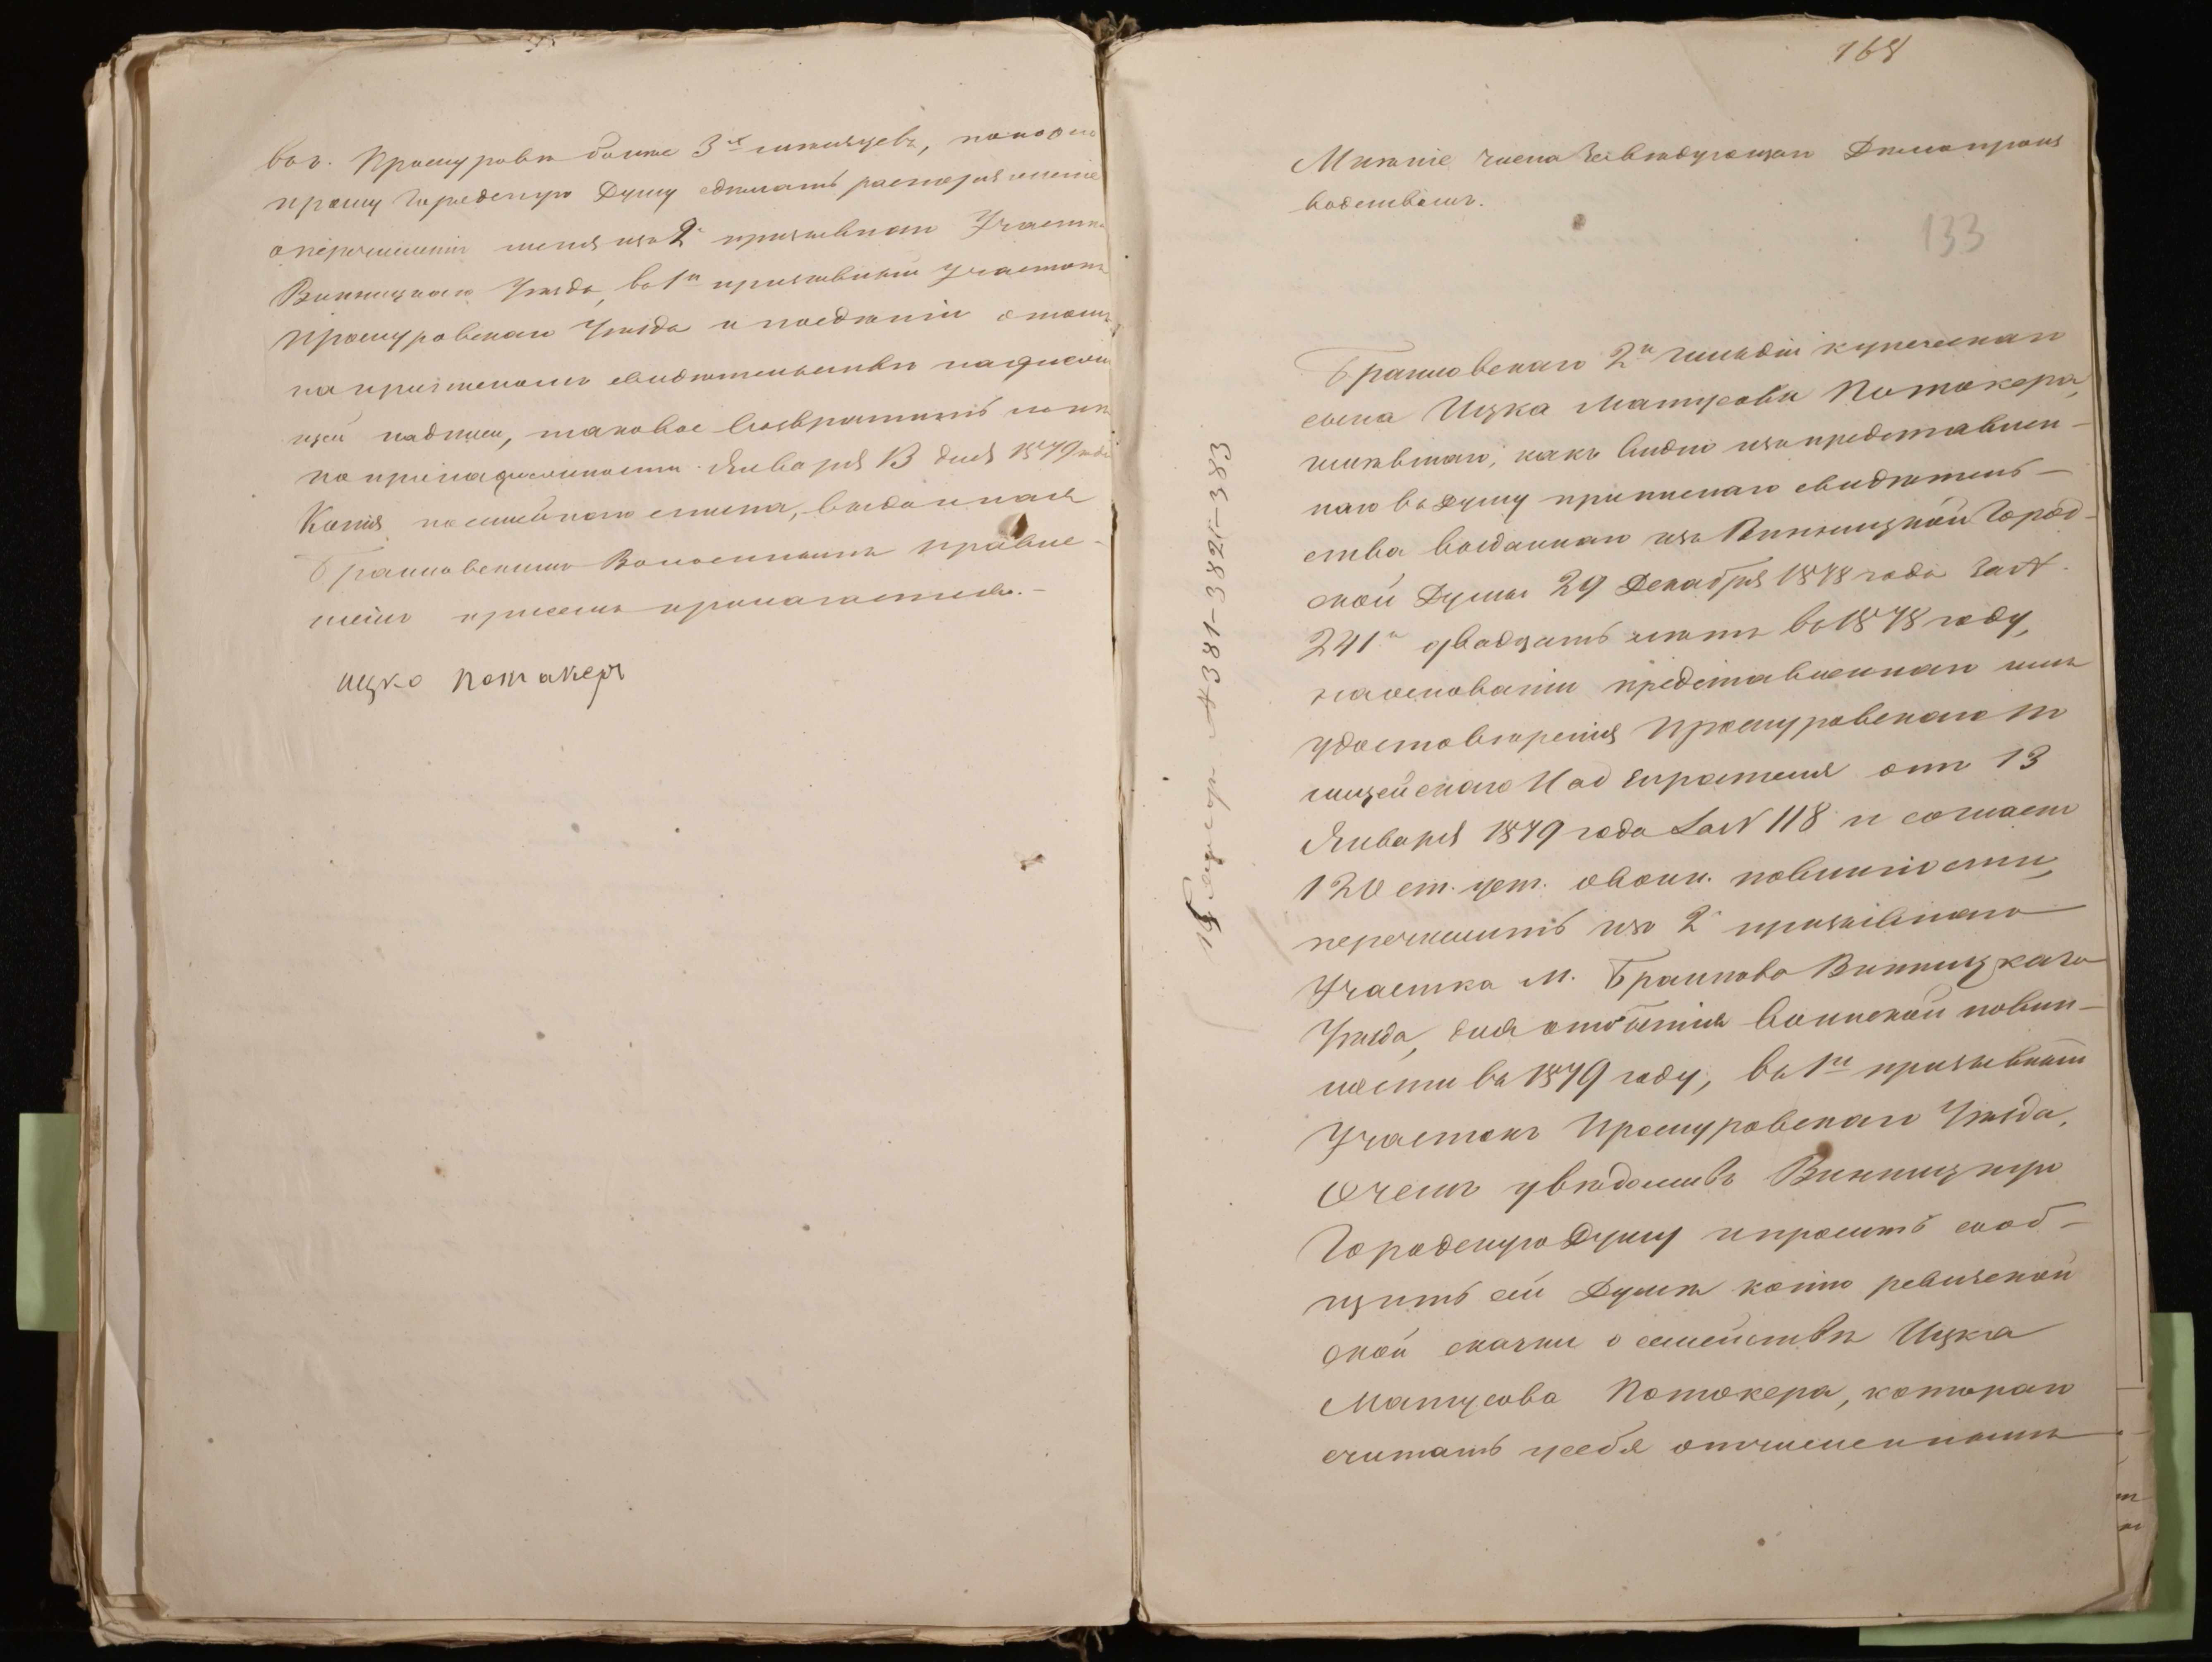 въ г. Проскуровѣ болѣе 3х мѣсяцевъ, покорно
прошу Городскую Думу сдѣлать распоряженіе
о перечисленіи меня изъ 2 призывнаго Участка
Винницкаго Уѣзда, въ 1й призывный участокъ
Проскуровскаго Уѣзда и по сдѣланіи о томъ
на приписномъ свидѣтельствѣ надлежа
щей надписи, таковое возвратить мнѣ
по принадлежности. Января 13 дня 1879 года
Копія посемейнаго списка, выданная
Браиловскимъ Волостнымъ правле-
ніемъ при семъ прилагается.-
ицко потакеръ
168
133
Мнѣніе члена Завѣдующаго Дѣлопроиз
водствомъ.
Браиловскаго 2й гильдіи купеческаго
сына Ицка Матусова Потокера,
имѣвшаго, какъ видно изъ представлен-
наго въ Думу приписнаго свидѣтель-
ства выданнаго изъ Винницкой Город-
ской Думы 29 Декабря 1878 года за №
241м двадцать лѣтъ въ 1878 году,
на основаніи представленнаго имъ
удостовѣренія Проскуровскаго По
лицейскаго Надзирателя отъ 13
Января 1879 года за № 118 и согласно
120 ст. уст. о воин. повинности,
перечислить изъ 2 призывнаго
Участка м. Браилова Винницкаго
Уѣзда, для отбытія воинской повин-
ности въ 1879 году, въ 1й призывный
Участокъ Проскуровскаго Уѣзда,
О чемъ увѣдомивъ Винницкую
Городскую Думу и просить сооб-
щить сей Думѣ копію ревизской
сказки о семействѣ Ицка
Матусова Потокера, котораго
считать у себя отчисленнымъ
№ 381-382-383